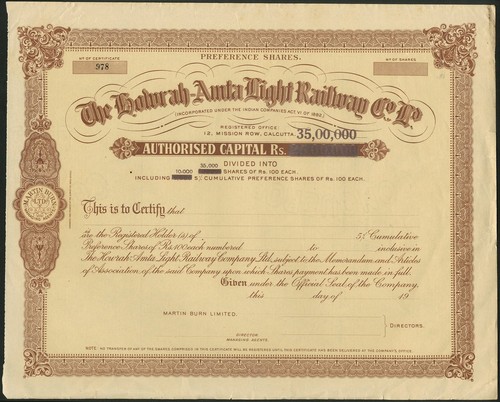 PREFERENCE SHARES.
Nº OF CERTIFICATE
Nº OF SHARES
978
The Howrah-Amta Light Railway Co. Ld.
(INCORPORATED UNDER THE INDIAN COMPANIES ACT, VI OF 1882)
REGISTERED OFFICE:
12, MISSION ROW, CALCUTTA.
35,00,000
AUTHORISED CAPITAL Rs.
DIVIDED INTO
35,000 SHARES OF Rs. 100 EACH.
INCLUDING 10,000 5% CUMULATIVE PREFERENCE SHARES OF Rs. 100 EACH.
MARTIN BURN LTD.
This is to Certify that
the Registered Holder (s) of 5% Cumulative
Preference Shares of Rs. 100 each numbered to inclusive in
The Howrah-Amta Light Railway Company Ltd. subject to the Memorandum and Articles
of Association of the said Company upon which Shares payment has been made in full.
Given under the Official Seal of the Company,
this day of 19
MARTIN BURN LIMITED.
DIRECTORS.
DIRECTOR
MANAGING AGENTS.
NOTE:-NO TRANSFER OF ANY OF THE SHARES COMPRISED IN THIS CERTIFICATE WILL BE REGISTERED UNTIL THIS CERTIFICATE HAS BEEN DELIVERED AT THE COMPANY'S OFFICE.